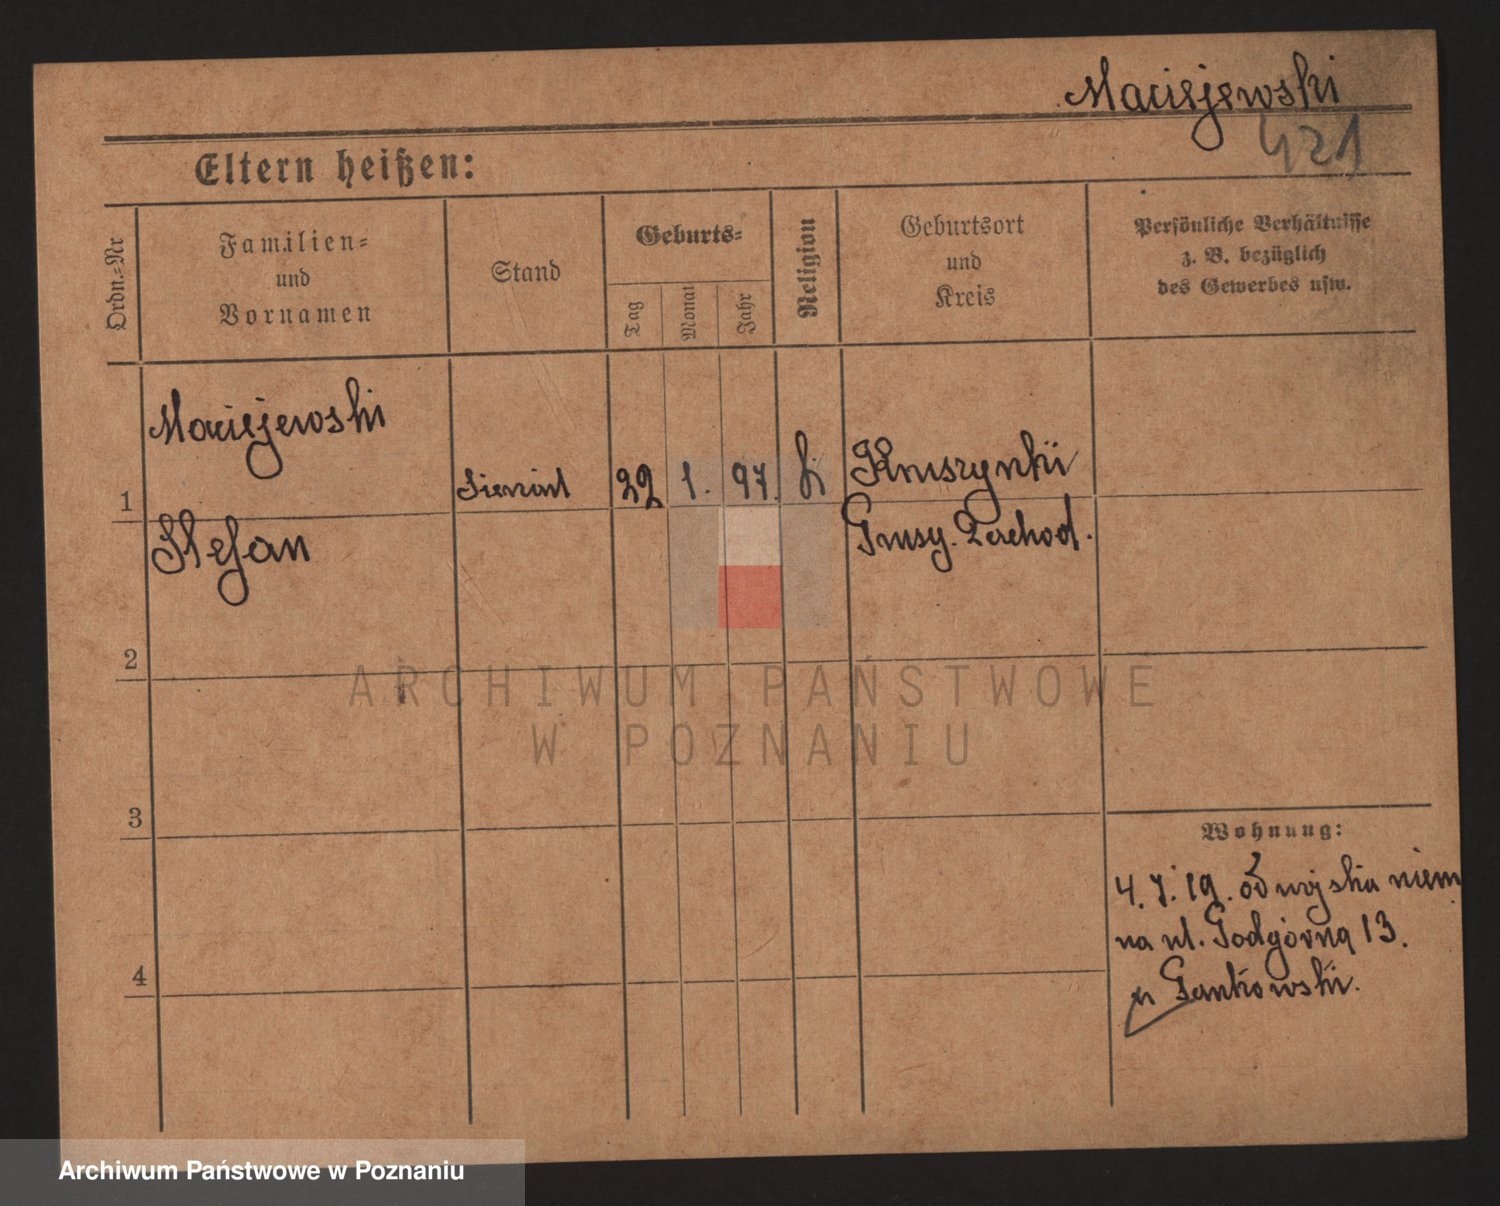 Maciejewski
421
Eltern heißen:
Ordn.=Nr
Familien=
und
Vornamen
Stand
Geburts=
Tag
Monat
Jahr
Religion
Geburtsort
und
Kreis
Persönliche Verhältnisse
z. B. bezüglich
des Gewerbes usw.
Maciejewski
1
22 1. 97. k
Kruszynki
Stefan
Prusy. Zachod.
2
3
4
Wohnung:
4. 7. 19. od wojska niem.
na ul. Podgórną 13.
Pankowski.
ARCHIWUM PAŃSTWOWE
W POZNANIU
Archiwum Państwowe w Poznaniu